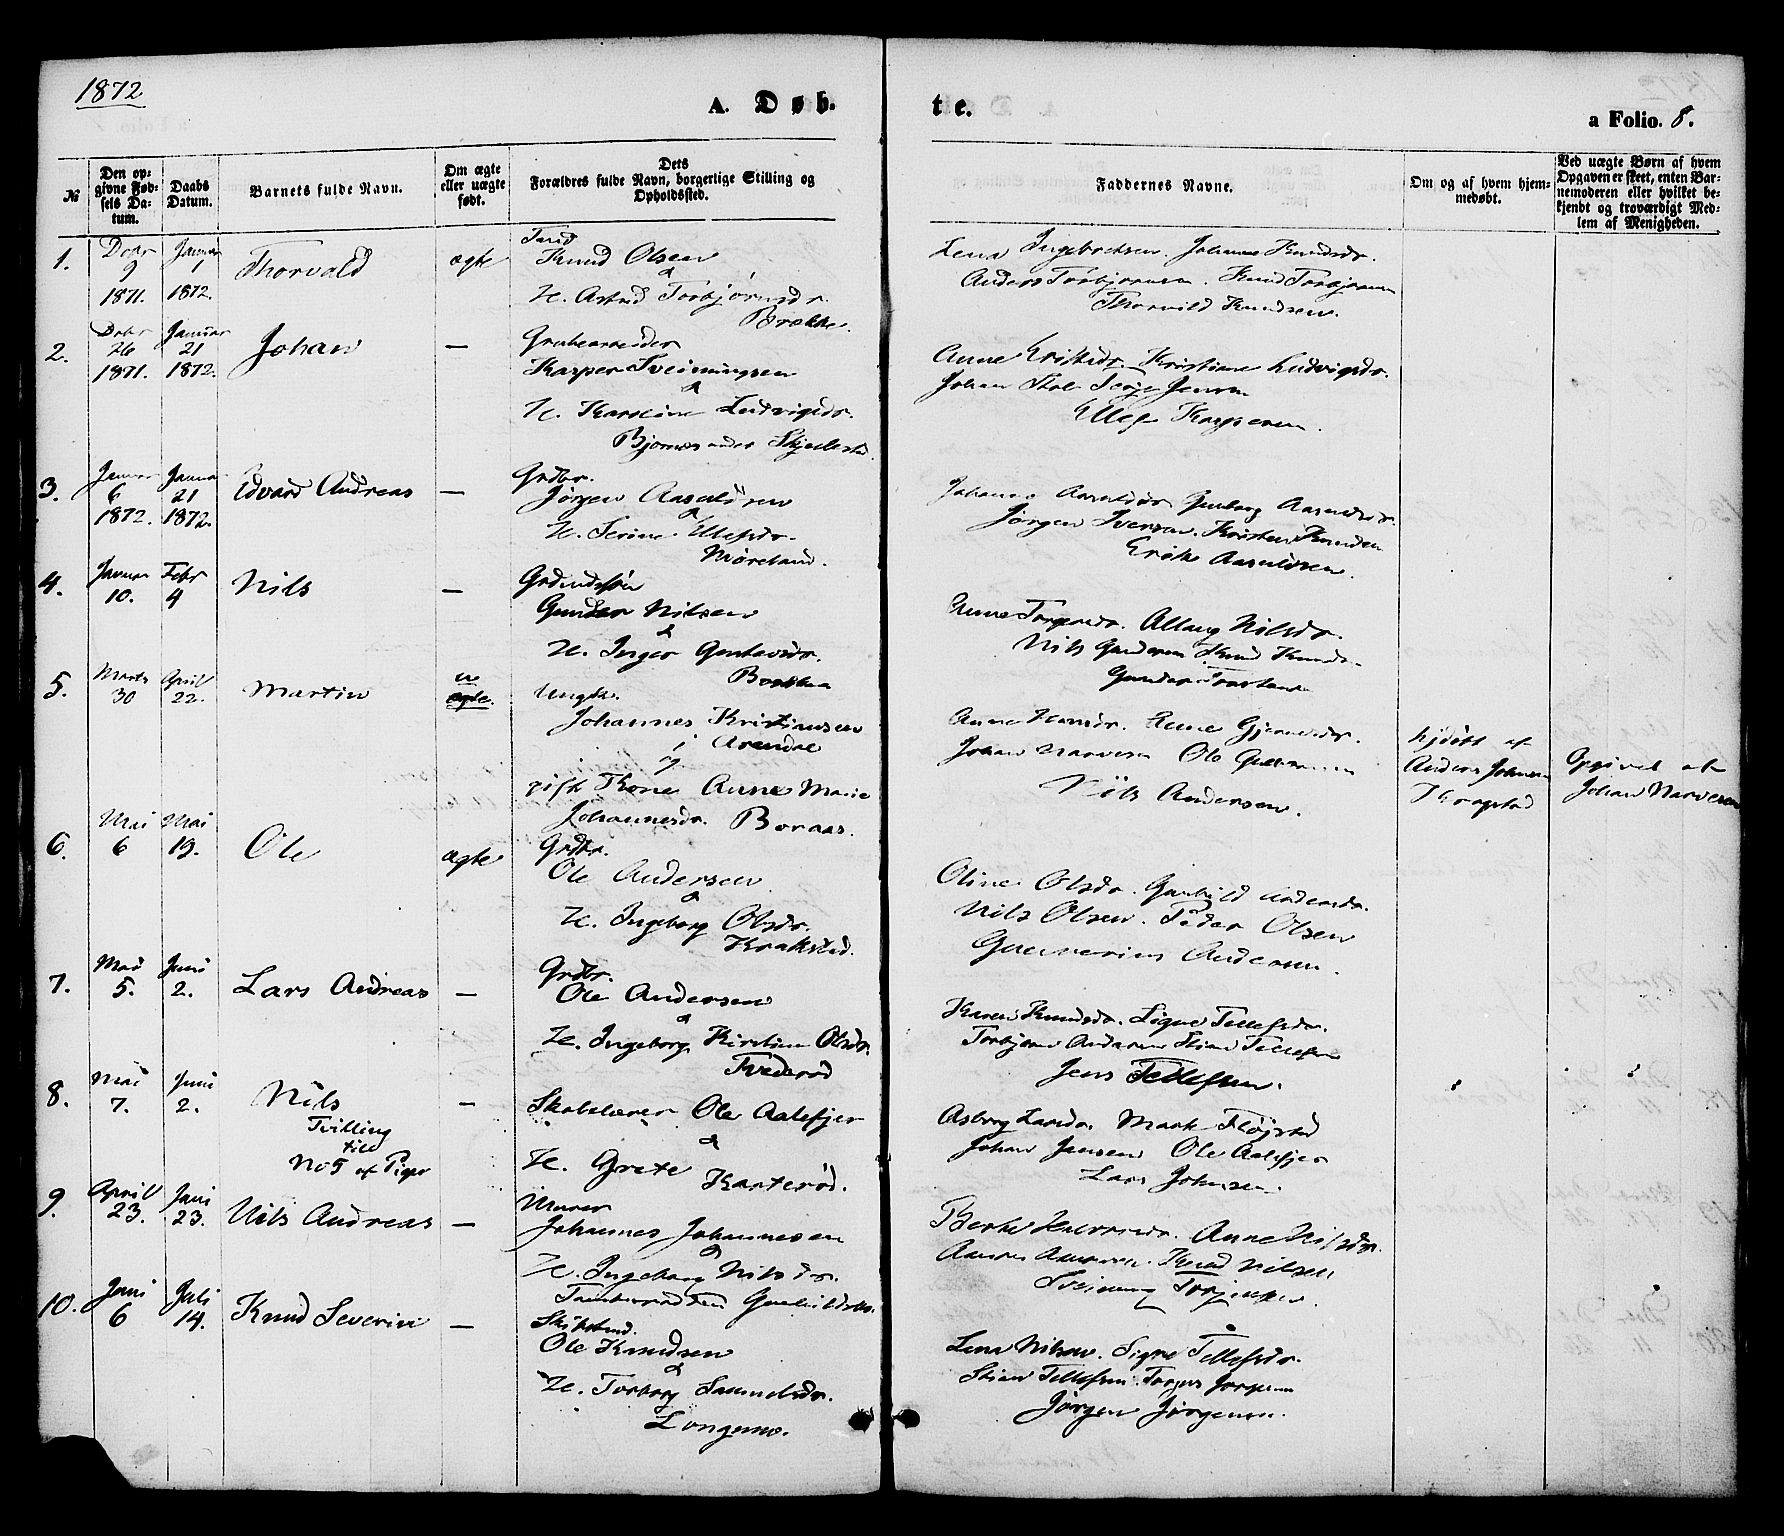 1872
A. Døb-
te.
a Folio. 8.
№
Den opgivne Fødsels Datum.
Daabs Datum.
Barnets fulde Navn.
Om ægte eller uægte født.
Dets Forældres fulde Navn, borgerlige Stilling og Opholdssted.
Faddernes Navne.
Om og af hvem hjemmedøbt.
Ved uægte Børn af hvem Opgaven er skeet, enten Barnemoderen eller hvilket bekjendt og troværdigt Medlem af Menigheden.
1.
Dcbr 9 1871.
Januar 1 1872.
Thorvald
ægte
Knud Olsen
&
H. Astrid Torbjørnsdr.
Brække.
Lena Ingebretsen. Johanne Knudsdr.
Anders Torbjørnsen. Knud Torbjørnsen
Thorvild Knudsen.
2.
Dcbr 26 1871.
Januar 21 1872.
Johan
—
Grubearbeider
Kasper Sveinungsen
&
H. Karoline Ludvigsdr.
Bjørnes under Skjellestad
Anne Eriksdr. Kristiane Ludvigsdr.
Johan Terje Jensen
Ellef Kaspersen.
3.
Januar 6 1872.
Januar 21 1872.
Edvard Andreas
—
Grdbr.
Jørgen Aasuldsen
&
H. Serine Ellefsdr.
Møreland.
Johanne Aasuldsdr. Aasuldsdr.
Jørgen Iversen. Kristen Knudsen
Erik Aasuldsen.
4.
Januar 10.
Febr 4
Nils
—
Gunder Nilsen
&
H. Inger Gustavsdr.
Brække
Anne Torgersdr. Allaug Nilsdr.
Nils Gundersen Knud Knuds-
Gunder
5.
Marts 30
April 22.
Martin
u
ægte.
Ungk.
Johannes Kristiansen
i Arendal
og
gift Kone Anne Marie
Johannesdr. Boraas.
Anne Hansdr. Anne Gjermdsdr.
Johan Narvesen Ole
Nils Andersen.
hjdøbt af
Anders Johnsen
Kragstad
Opgivet af
Johan Narvesen
6.
Mai 6
Mai 19.
Ole
ægte
Grdbr.
Ole Andersen
&
H. Ingeborg Olsdr.
Krakstad.
Oline Olsdr. Gunhild Andersdr.
Nils Olsen. Peder Olsen
Gunnerius Andersen.
7.
Mai 5.
Juni 2.
Lars Andreas
—
Grdbr.
Ole Andersen
&
H. Ingeborg Kirstine Olsdr.
Tvederød
Karen Knudsdr. Signe Tellefsdr.
Torbjørn Andersen Stian Tellefsen
Jens Tellefsen.
8.
Mai 7.
Juni 2.
Nils
Tvilling
till
No 5 af Piger
—
Skolelærer Ole Aalefjer
&
H. Grete Karterød.
Asborg Larsdr. Marte Fløjstad
Johan Jensen Ole Aalefjer
Lars Johnsen.
9.
April 23.
Juni 23.
Nils Andreas
—
Murer
Johannes Johannesen
&
H. Ingeborg Nilsdr.
Berte Halvorsdr. Anne Nilsdr.
Knud Nilsen
Sveinung Torjusen.
10.
Juni 6
Juli 14.
Knud Severin
—
Ole Knudsen
&
H. Torborg Samuelsdr.
Longemo.
Lena Nilsen. Signe Tellefsdr.
Stian Tellefsen. Torgers Jørgensen
Jørgen Jørgensen.